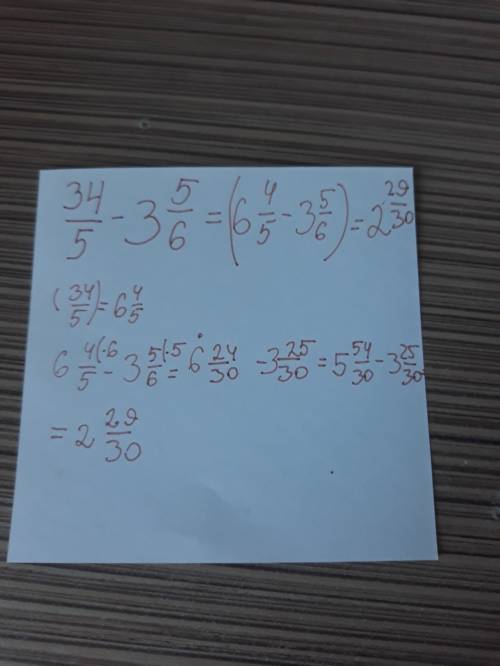 34/5 - 3 5/6 = (6 4/5 - 3 5/6) = 2 29/30
(34/5) = 6 4/5
6 4/5 (·6 - 3 5/6 (·5 = 6 24/30 - 3 25/30 = 5 54/30 - 3 25/30
= 2 29/30